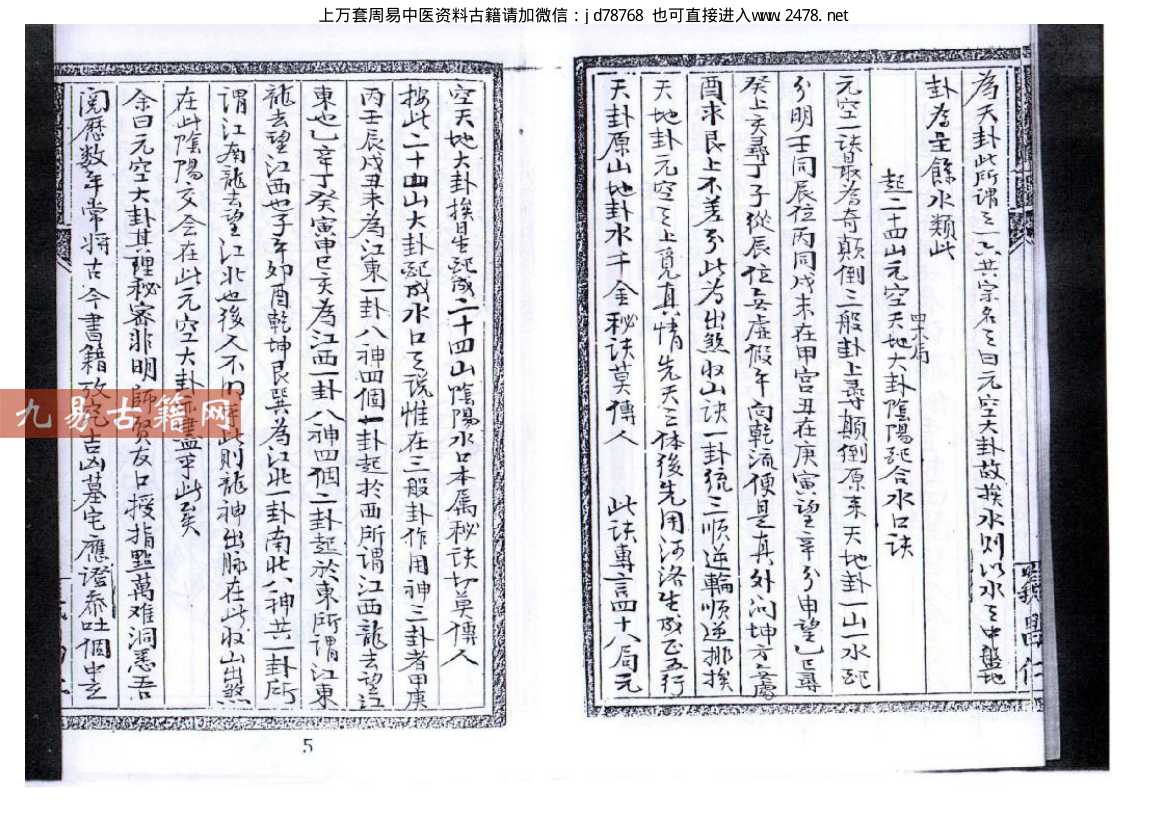 上万套周易中医资料古籍请加微信：jd78768 也可直接进入www.2478.net
為天卦此所謂之一六共宗名之曰元空大卦故挨水則以水之中盤地
卦為主餘水類此
起二十四山元空天地大卦陰陽配合水口訣
四十八局
元空一訣最為奇顛倒三般卦上尋顛倒原来天地卦一山一水配
分明壬同辰位丙同戌未在甲宮丑在庚寅望辛分申望乙巳尋
癸上亥尋丁子從辰位無虛假午向乾流便是真外向坤方
酉求艮上不差分此為出煞收山訣一卦統三順逆輪順逆挪挨
天地卦元空之上覓真情先天三体後先用河洛生成正五行
天卦原山地卦水千金秘訣莫傳人 此訣專言四十八局元
空天地大卦挨星配成二十四山陰陽水口本属秘訣切莫傳人
按此二十四山大卦配成水口之說惟在三般卦作用神三卦者甲庚
丙壬辰戌丑未為江東一卦八神四個一卦起於西所謂江西龍去望江
東也乙辛丁癸寅申巳亥為江西一卦八神四個二卦起於東所謂江東
龍去望江西也子午卯酉乾坤艮巽為江北一卦南北八神共一卦所
謂江南龍去望江北也後人不明此則龍神出脉在此收山出煞
在此陰陽交会在此元空大卦亦盡乎此矣
余曰元空大卦其理秘密非明師賢友口授指點萬难洞悉吾
閱歷数年常将古今書籍攷究吉凶墓宅應證泰吐個中玄
九易古籍网
5